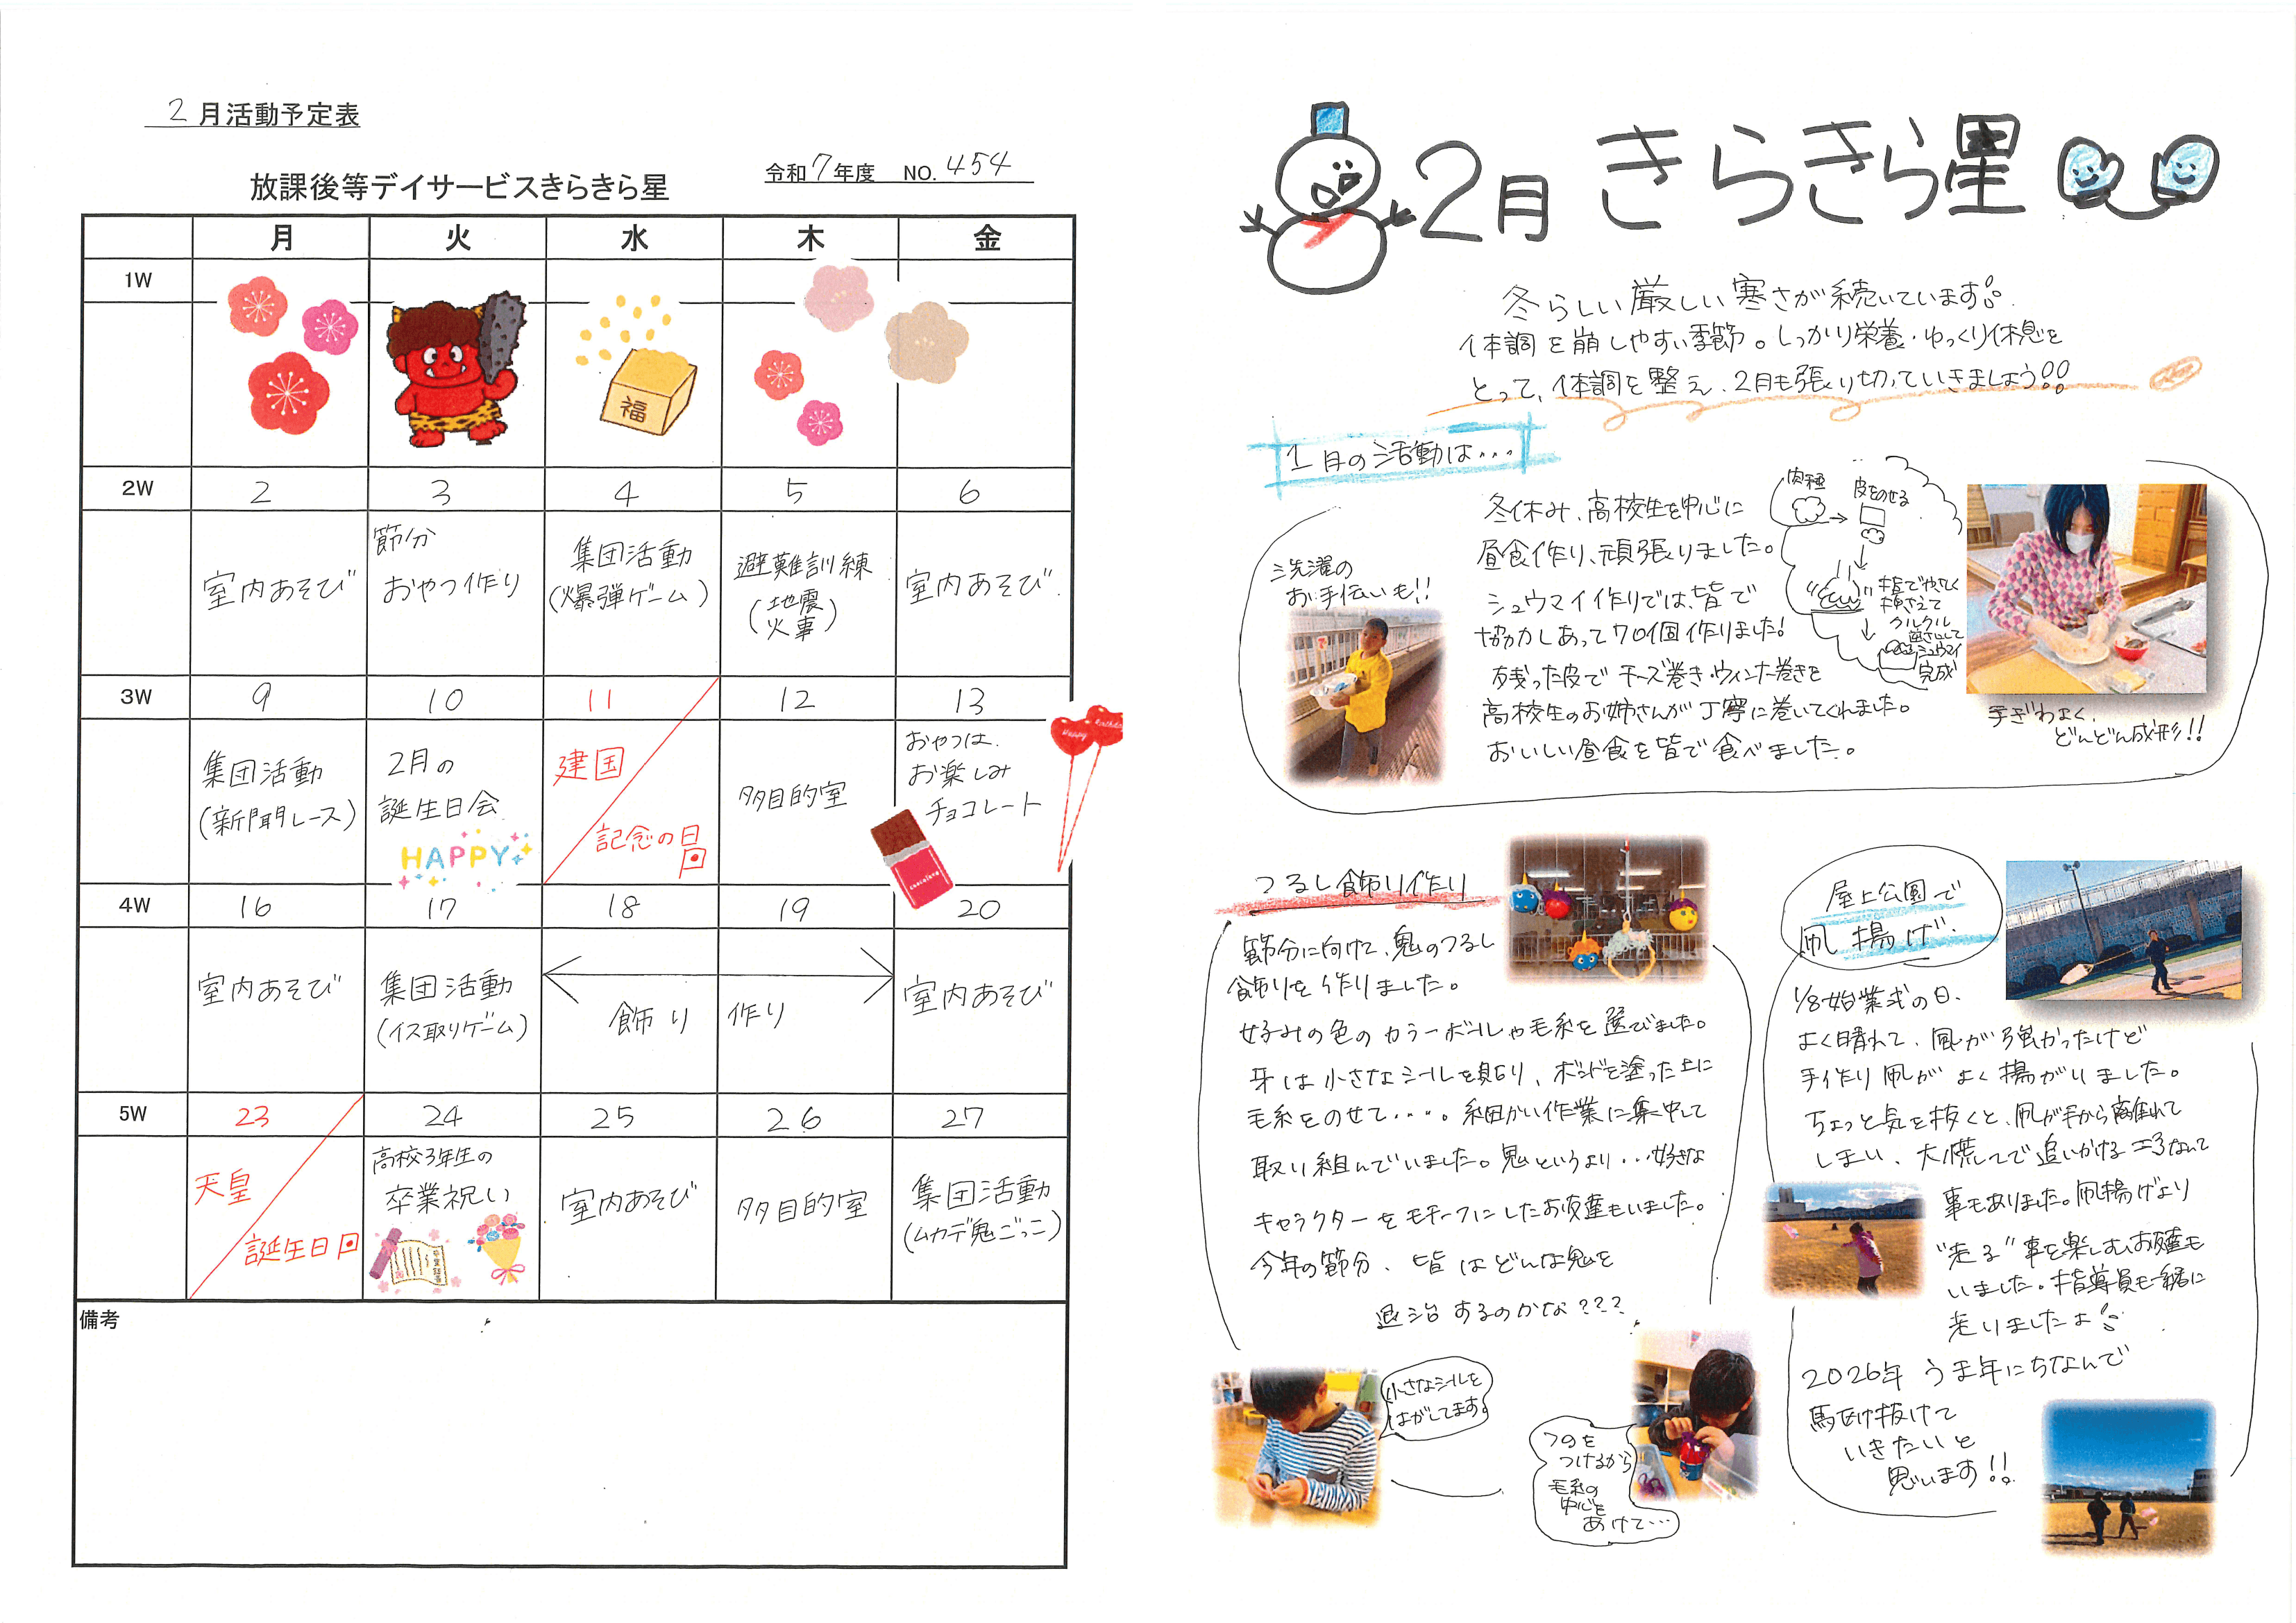 2月活動予定表
放課後等デイサービスきらきら星
令和7年度 NO.454
月 火 水 木 金
1W
福
2W 2 3 4 5 6
室内あそび
節分
おやつ作り
集団活動
(爆弾ゲーム)
避難訓練
(地震
火事)
室内あそび
3W 9 10 11 12 13
集団活動
(新聞レース)
2月の
誕生日会
HAPPY
建国
記念の日
多目的室
おやつは、
お楽しみ
チョコレート
4W 16 17 18 19 20
室内あそび
集団活動
(イス取りゲーム)
飾り 作り
室内あそび
5W 23 24 25 26 27
天皇
誕生日
高校3年生の
卒業祝い
室内あそび
多目的室
集団活動
(ムカデ鬼ごっこ)
備考
2月 きらきら星
冬らしい厳しい寒さが続いています。
体調を崩しやすい季節。しっかり栄養・ゆっくり休息を
とって、体調を整え、2月も張り切っていきましょう!!
1月の活動は・・・
洗濯の
お手伝いも!!
冬休み、高校生を中心に
昼食作り、頑張りました。
シュウマイ作りでは、皆で
協力しあって70個作りました!
残った皮でチーズ巻き・ウィンナー巻きを
高校生のお姉さんが丁寧に巻いてくれました。
おいしい昼食を皆で食べました。
肉種
皮をのせる
指でやさしく
押さえて
クルクル
シュウマイ
完成
手ぎわよく、
どんどん成形!!
つるし飾り作り
節分に向けて、鬼のつるし
飾りを作りました。
好みの色のカラーボールや毛糸を選びました。
牙は小さなシールを貼り、ボンドを塗った上に
毛糸をのせて・・・。細かい作業に集中して
取り組んでいました。鬼というより・・好きな
キャラクターをモチーフにしたお友達もいました。
今年の節分、皆はどんな鬼を
退治するのかな???
小さなシールを
はがしてます。
つのを
つけるから
毛糸の
中心を
あけて…
屋上公園で
凧揚げ
1/8始業式の日、
よく晴れて、風が強かったけど
手作り凧がよく揚がりました。
ちょっと気を抜くと、凧が手から離れて
しまい、大慌てで追いかけるなんて
事もありました。凧揚げより
"走る"事を楽しむお友達も
いました。指導員も一緒に
走りましたよ
2026年 うま年にちなんで
駆け抜けて
いきたいと
思います!!